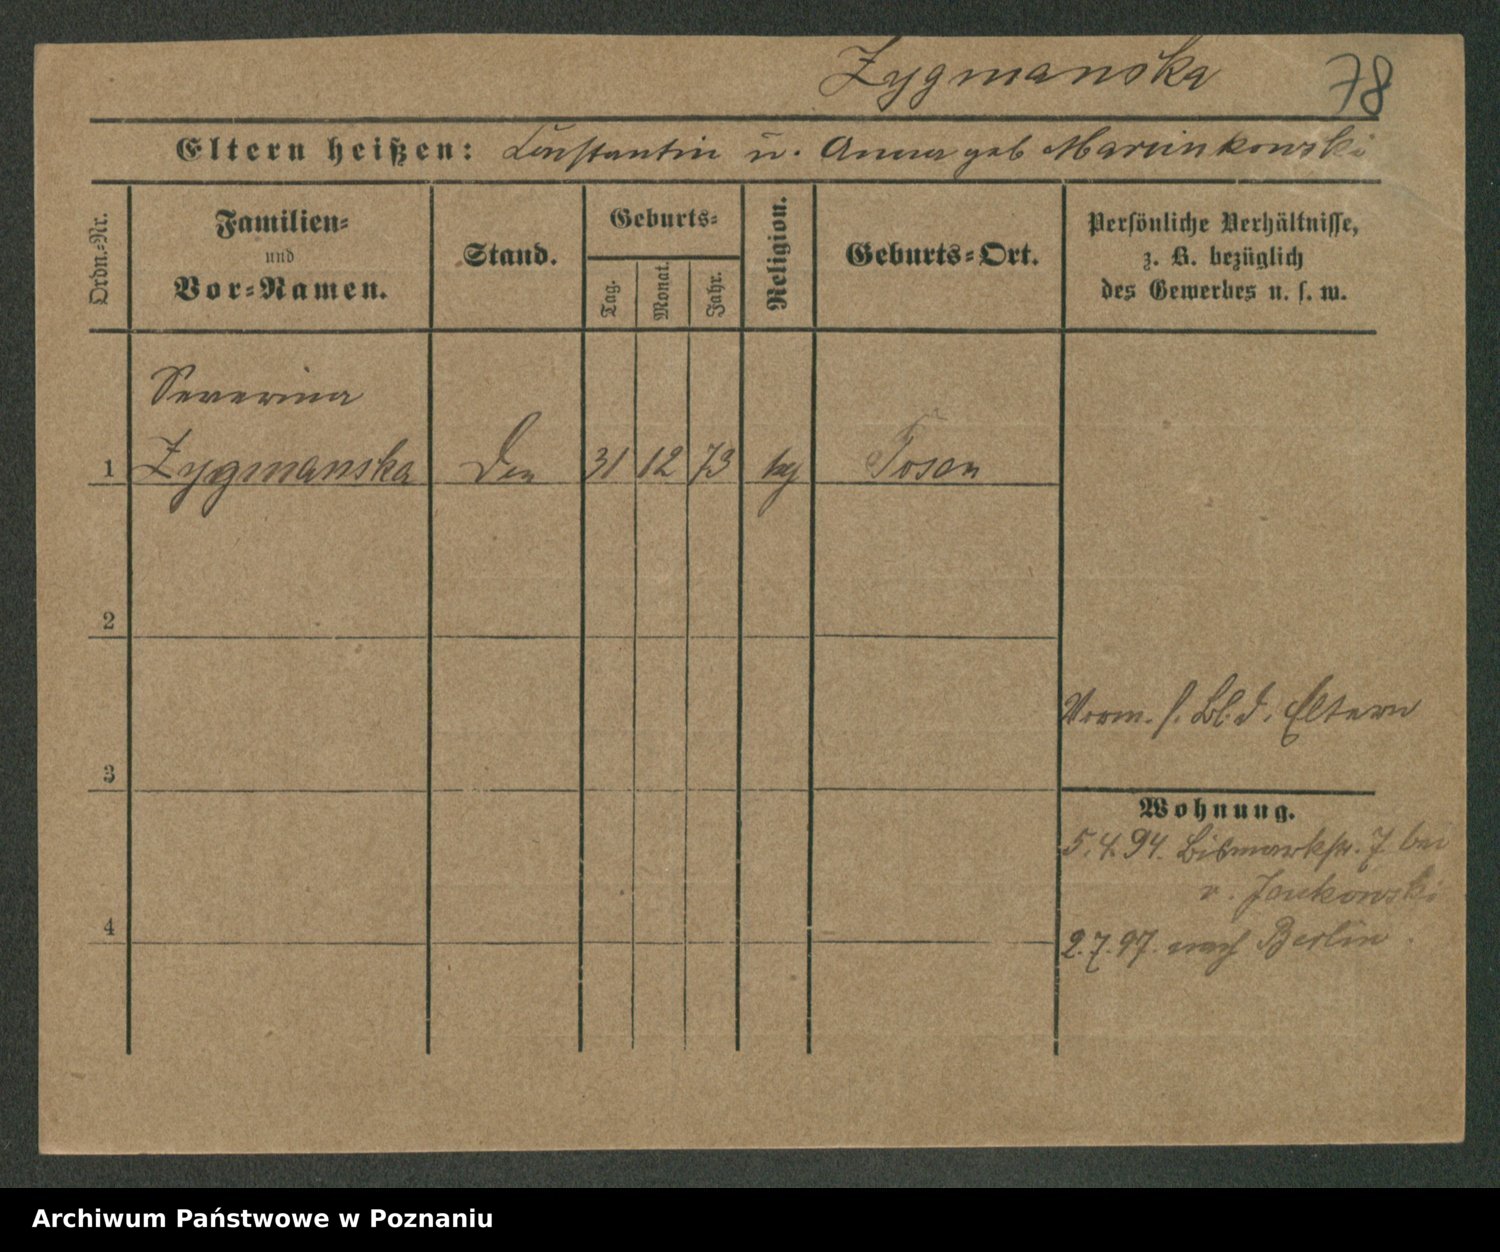 Zygmanska 78
Eltern heißen: Constantin u. Anna geb Marcinkowski
Ordn.-Nr.
Familien-
und
Vor-Namen.
Stand.
Geburts-
Tag.
Monat.
Jahr.
Religion.
Geburts-Ort.
Persönliche Verhältnisse,
z. B. bezüglich
des Gewerbes u. s. w.
Severina
1 Zygmanska 31 12 73 Posen
2
Vorm. s. Bl. d. Eltern
3
Wohnung.
5.4.94. Bismarkstr. 7 bei
v. Jankowski
4
2.7.97. nach Berlin.
Archiwum Państwowe w Poznaniu